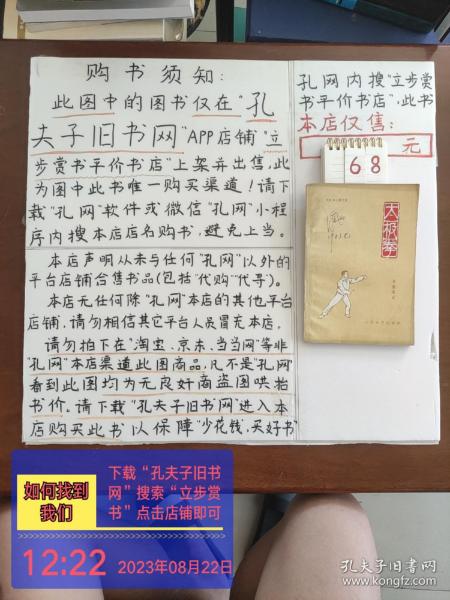 购书须知:
此图中的图书仅在"孔
夫子旧书网"APP店铺"立
步赏书平价书店"上架并出售,此
为图中此书唯一购买渠道!请下
载"孔网"软件或微信"孔网"小程
序内搜本店店名购书,避免上当。
本店声明从未与任何"孔网"以外的
平台店铺合售书品(包括"代购""代寻")。
本店无任何除"孔网"本店的其他平台
店铺,请勿相信其它平台人员冒充本店,
请勿拍下在"淘宝、京东、当当网等非
"孔网"本店渠道此图商品,凡不是"孔网"
看到此图均为无良奸商盗图哄抬
书价。请下载"孔夫子旧书网"进入本
店购买此书以保障"少花钱,买好书
孔网内搜"立步赏
书平价书店",此书
本店仅售:
68
元
太极拳
如何找到
我们
下载“孔夫子旧书
网”搜索“立步赏
书”点击店铺即可
12:22
2023年08月22日
孔夫子旧书网
www.kongfz.com